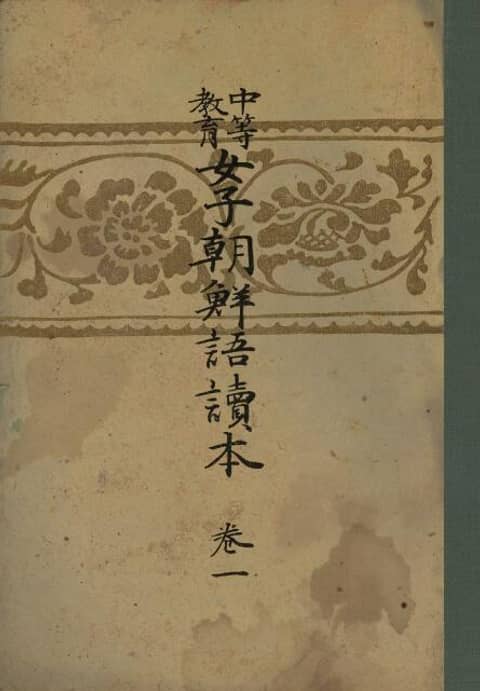 中等
教育
女子朝鮮語讀本 卷一